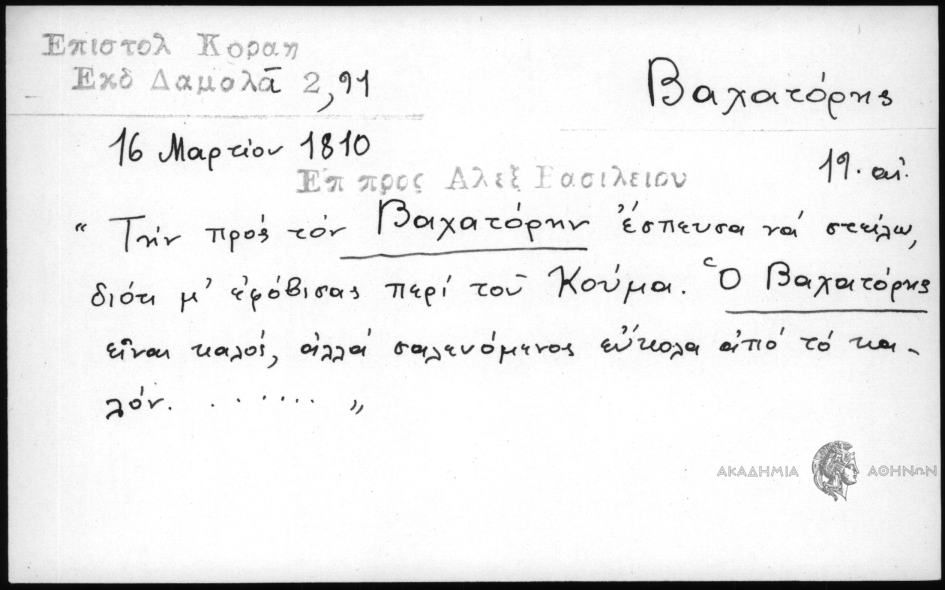 Επιστολ Κοραη
Εκδ Δαμαλᾶ 2,91
Βαχατόρης
16 Μαρτίου 1810
19. αἰ.
Επ προς Αλεξ Βασιλειου
“ Τήν πρός τόν Βαχατόρην ἔσπευσα νά στείλω,
διότι μ' ἐφόβισας περί τοῦ Κούμα. Ὁ Βαχατόρης
εἶναι καλός, ἀλλά σαλευόμενος εὔκολα ἀπό τό κα-
λόν. . . . . . . . ”
ΑΚΑΔΗΜΙΑ ΑΘΗΝΩΝ